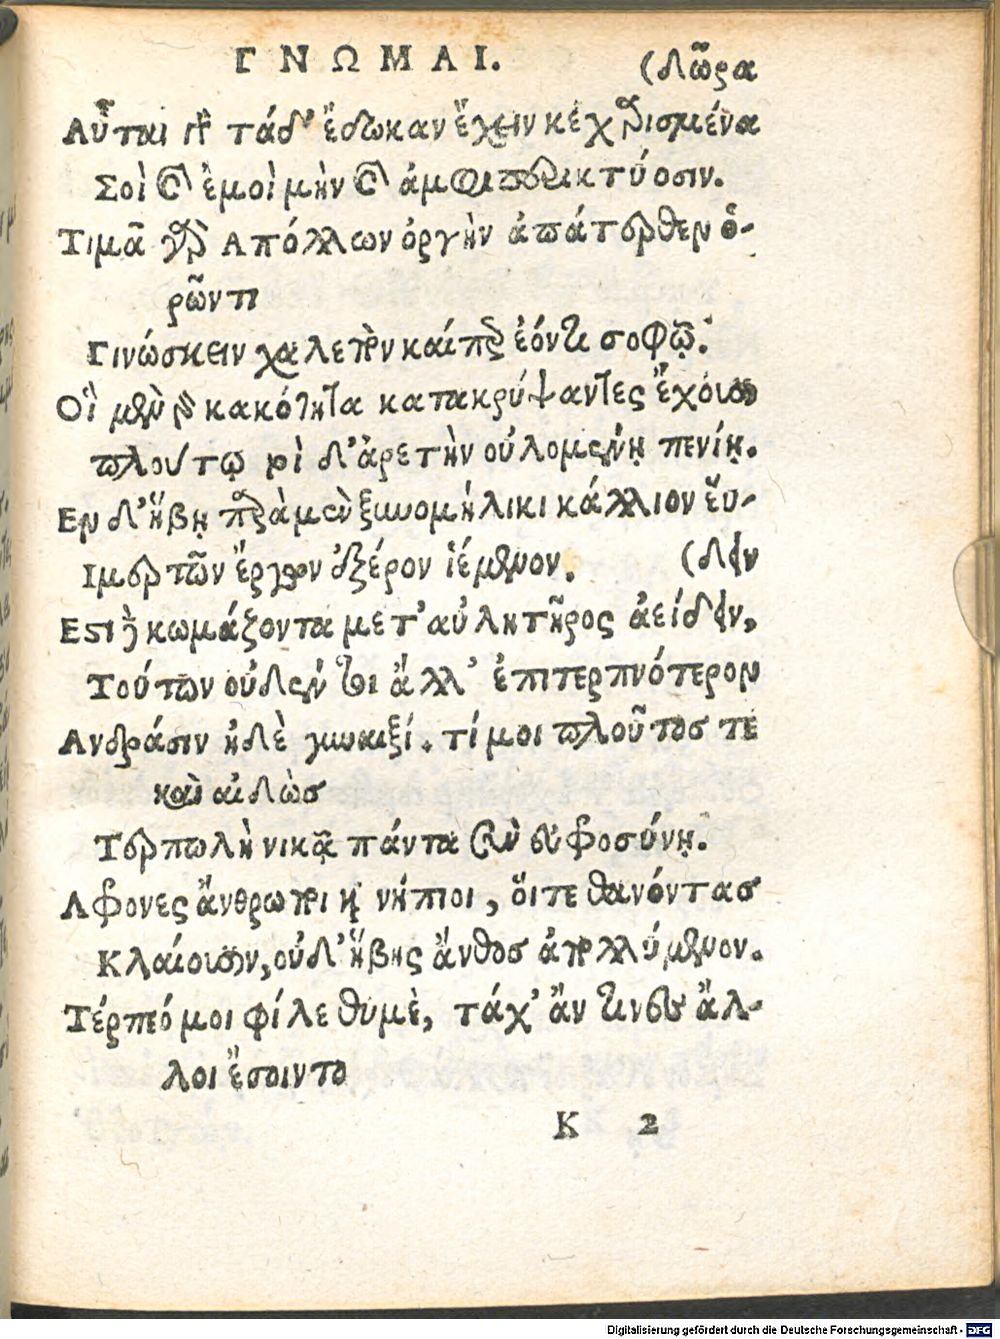 ΓΝΩΜΑΙ.
(δῶρα
Αὗται γὰρ τάδ' ἔδωκαν ἔχειν κεχαρισμένα
Σοὶ καὶ ἐμοὶ μὴν καὶ ἀμφιπερικτύοσιν.
Τιμᾶ γὰρ Απόλλων ὀργὴν ἀπάτερθεν ὁ-
ρῶντι
Γινώσκειν χαλεπὸν καίπερ ἐόντι σοφῷ.
Οἳ μὲν γὰρ κακότητα κατακρύψαντες ἔχουσι
πλούτῳ τοὶ δ' ἀρετὴν οὐλομένῃ πενίῃ.
Εν δ' ἥβῃ παρὰ μὲν ξυνομήλικι κάλλιον εὕ-
Ιμερτῶν ἔργων ὀξέρον ἱέμενον. (δειν
Εστὶ δὲ κωμάζοντα μετ' αὐλητῆρος ἀείδειν,
Τούτων οὐδὲν τοι ἄλλ' ἐπιτερπνότερον
Ανδράσιν ἠδὲ γυναιξί. τί μοι πλοῦτοσ τε
καὶ αἰδὼσ
Τερπωλὴ νικᾷ πάντα σὺν εὐφροσύνῃ.
Αφρονες ἄνθρωποι καὶ νήπιοι, ὅιτε θανόντασ
Κλαίουσιν, οὐδ' ἥβης ἄνθοσ ἀπολλύμενον.
Τέρπεό μοι φίλε θυμὲ, τάχ' ἄν τινες ἄλ-
λοι ἔσοιντο
K 2
Digitalisierung gefördert durch die Deutsche Forschungsgemeinschaft - DFG